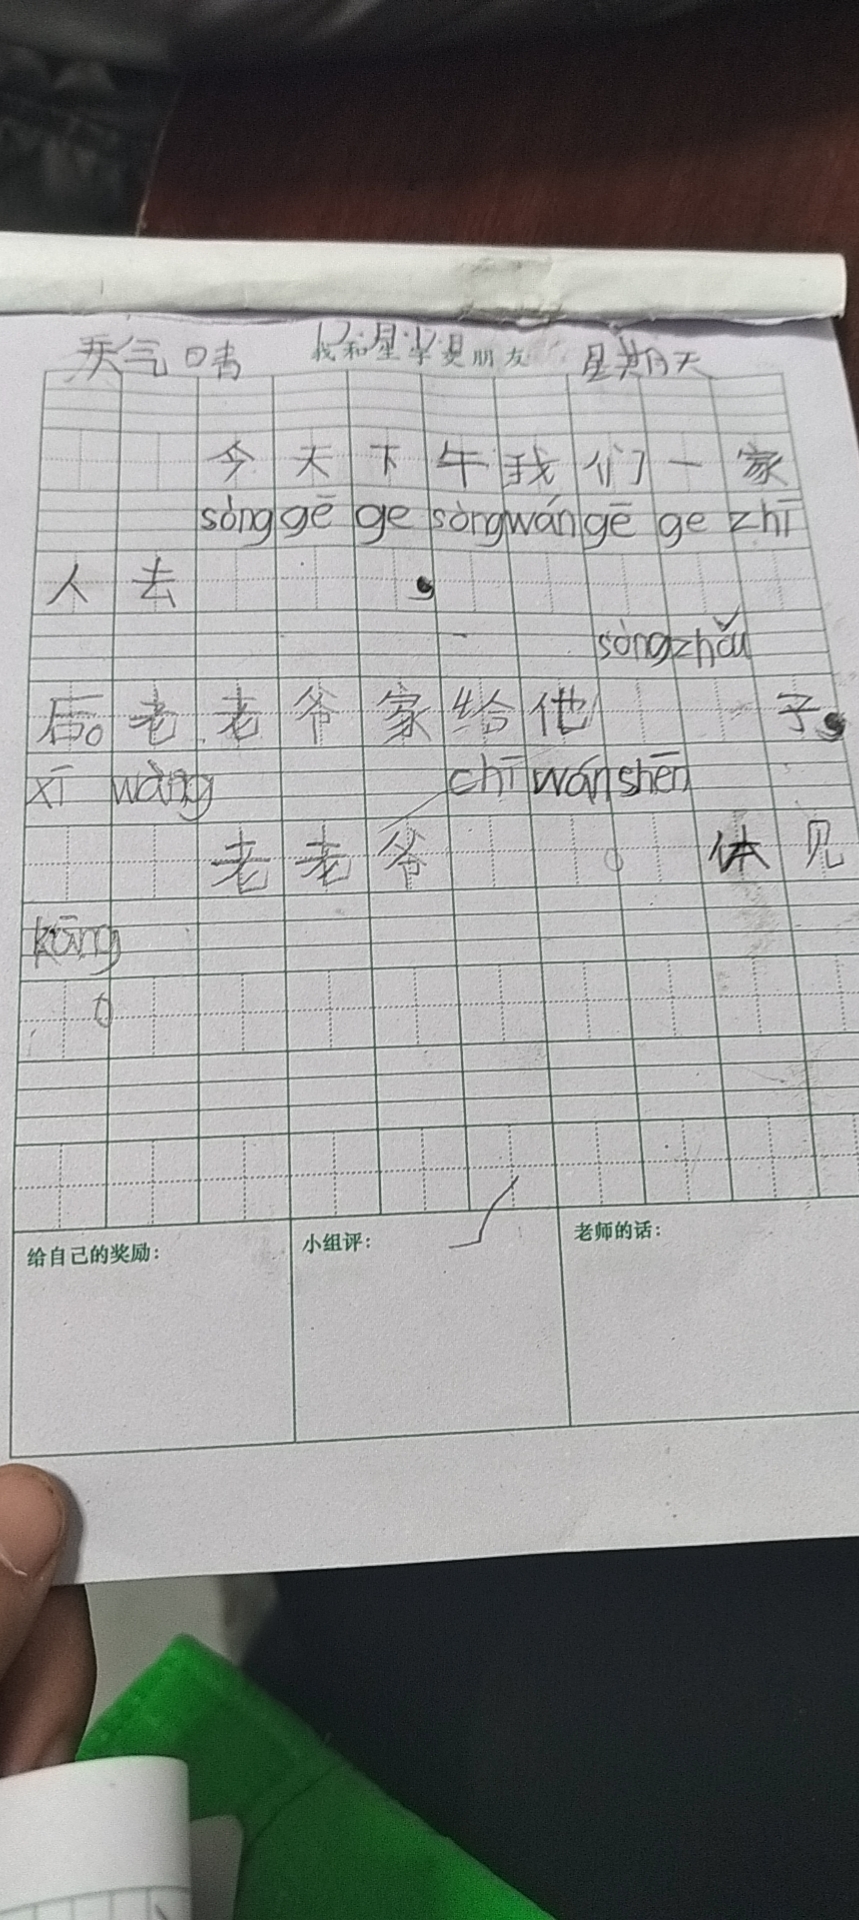 天气晴 我和星学更朋友 星期天
今天下午我们一家
sòng gē ge sòng wán gē ge zhī
人去,
sòng zhǎu
后。老老爷家给他 子,
xī wàng chī wán shēn
老老爷 。体见
kāng
。
给自己的奖励: 小组评: 老师的话: